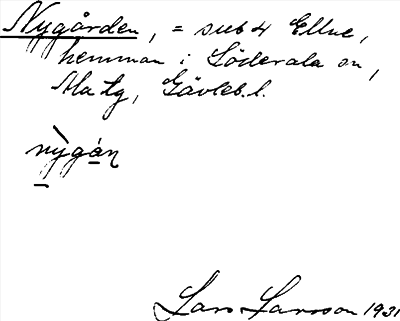 Nygården, = sub 4 Ellne,
hemman i Söderala sn,
Ala tg, Gävleb. l.
nỳgán
Lars Larsson 1931